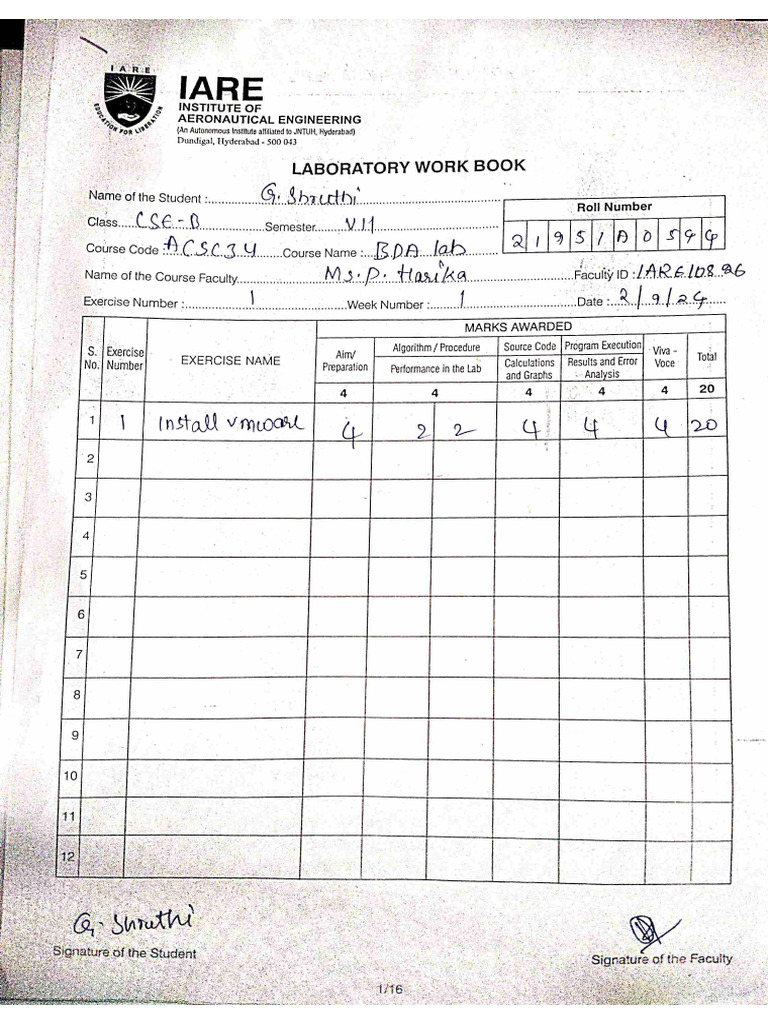 I A R E
EDUCATION FOR LIBERATION
IARE
INSTITUTE OF
AERONAUTICAL ENGINEERING
(An Autonomous Institute affiliated to JNTUH, Hyderabad)
Dundigal, Hyderabad - 500 043
LABORATORY WORK BOOK
Name of the Student : G. Shruthi
Roll Number
Class CSE-B Semester VII
2 1 9 5 1 A 0 5
Course Code : ACSC34 Course Name : BDA lab
Name of the Course Faculty Ms. P. Harika Faculty ID : IARE10826
Exercise Number : 1 Week Number : 1 Date : 2/9/24
MARKS AWARDED
S. No. Exercise Number EXERCISE NAME Aim/ Preparation Algorithm / Procedure Performance in the Lab Source Code Calculations and Graphs Program Execution Results and Error Analysis Viva - Voce Total
4 4 4 4 4 20
1 1 Install vmware 4 2 2 4 4 4 20
2
3
4
5
6
7
8
9
10
11
12
G. Shruthi
Signature of the Student Signature of the Faculty
1/16